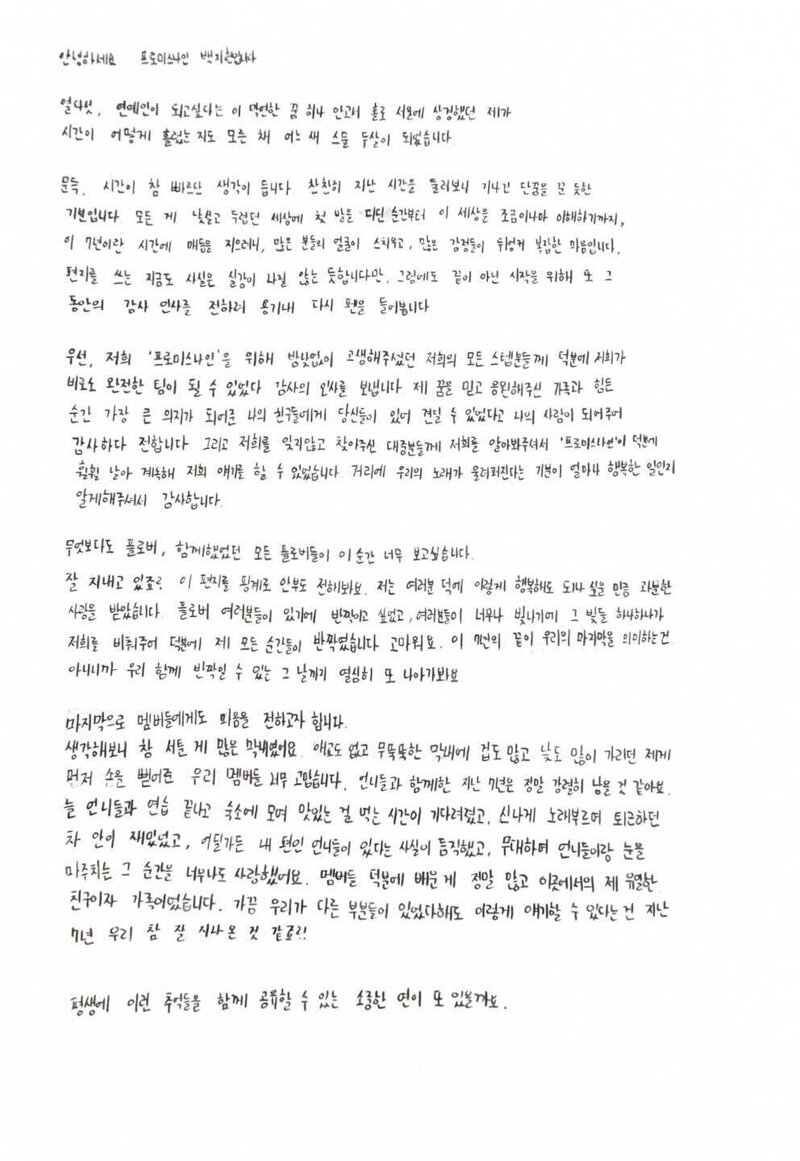 안녕하세요 프로미스나인 백지헌입니다
열다섯, 연예인이 되고싶다는 이 막연한 꿈 하나 안고서 홀로 서울에 상경했던 제가
시간이 어떻게 흘렀는지도 모른 채 어느새 스물 두살이 되었습니다.
문득, 시간이 참 빠르단 생각이 듭니다 찬찬히 지난 시간을 둘러보니 기나긴 단꿈을 꾼 듯한
기분입니다. 모든 게 낯설고 두렵던 세상에 첫 발을 디딘 순간부터 이 세상을 조금이나마 이해하기까지,
이 7년이란 시간에 매듭을 지으려니, 많은 분들의 얼굴이 스치우고, 많은 감정들이 뒤엉켜 복잡한 마음입니다.
편지를 쓰는 지금도 사실은 실감이 나질 않는 듯합니다만, 그럼에도 끝이 아닌 시작을 위해 또 그
동안의 감사 인사를 전하려 용기내 다시 펜을 들어봅니다
우선, 저희 '프로미스나인'을 위해 밤낮없이 고생해주셨던 저희의 모든 스텝분들께 덕분에 저희가
비로소 완전한 팀이 될 수 있었다 감사의 인사를 보냅니다 제 꿈을 믿고 응원해주신 가족과 힘든
순간 가장 큰 의지가 되어준 나의 친구들에게 당신들이 있어 견딜 수 있었다고 나의 사람이 되어주어
감사하다 전합니다 그리고 저희를 잊지않고 찾아주신 대중분들께 저희를 알아봐주셔서 '프로미스나인'이 덕분에
훨훨 날아 계속해 저희 얘기를 할 수 있었습니다 거리에 우리의 노래가 울려퍼진다는 기분이 얼마나 행복한 일인지
알게해주셔서 감사합니다.
무엇보다도 플로버, 함께했었던 모든 플로버들이 이 순간 너무 보고싶습니다.
잘 지내고 있죠? 이 편지를 핑계로 안부도 전해봐요. 저는 여러분 덕에 이렇게 행복해도 되나 싶을 만큼 과분한
사랑을 받았습니다. 플로버 여러분들이 있기에 반짝이고 싶었고, 여러분들이 너무나 빛나기에 그 빛들 하나하나가
저희를 비춰주어 덕분에 제 모든 순간들이 반짝였습니다 고마워요. 이 7년의 끝이 우리의 마지막을 의미하는건
아니니까 우리 함께 반짝일 수 있는 그 날까지 열심히 또 나아가봐요
마지막으로 멤버들에게도 마음을 전하고자 합니다.
생각해보니 참 서툰 게 많은 막내였어요. 애교도 없고 무뚝뚝한 막내에 겁도 많고 낯도 많이 가리던 제게
먼저 손을 뻗어준 우리 멤버들 너무 고맙습니다. 언니들과 함께한 지난 7년은 정말 강렬히 남을 것 같아요.
늘 언니들과 연습 끝나고 숙소에 모여 맛있는 걸 먹는 시간이 기다려졌고, 신나게 노래부르며 퇴근하던
차 안이 재밌었고, 어딜가든 내 편인 언니들이 있다는 사실이 듬직했고, 무대하며 언니들이랑 눈을
마주치는 그 순간을 너무나도 사랑했어요. 멤버들 덕분에 배운 게 정말 많고 이곳에서의 제 유일한
친구이자 가족이었습니다. 가끔 우리가 다른 부분들이 있었다해도 이렇게 얘기할 수 있다는 건 지난
7년 우리 참 잘 지나온 것 같죠?!
평생에 이런 추억들을 함께 공유할 수 있는 소중한 연이 또 있을까요.